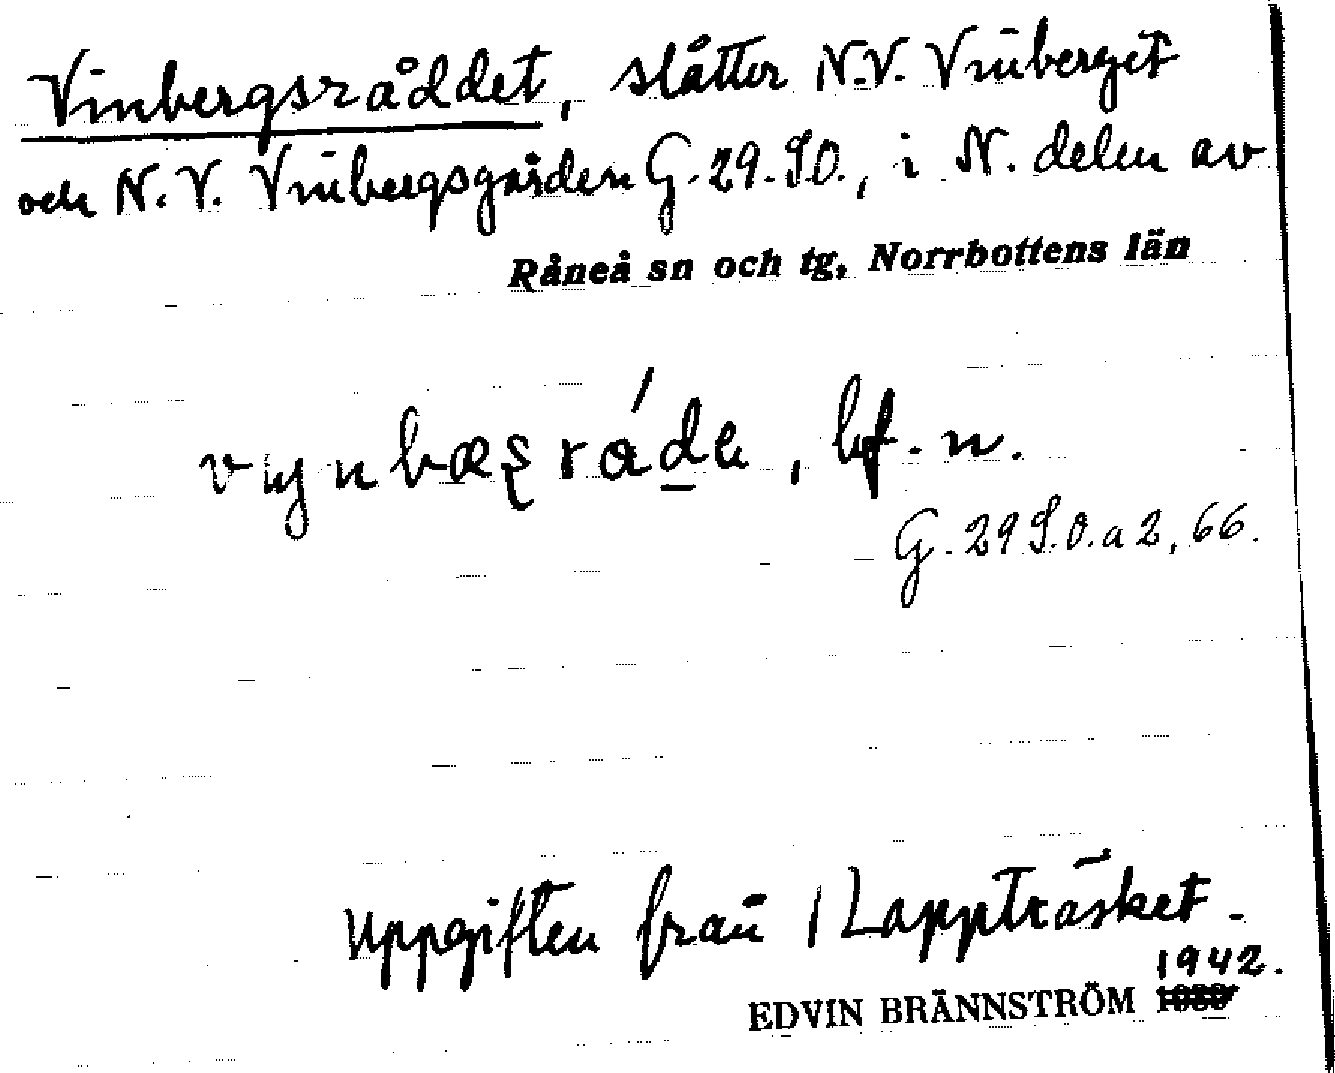 Vinbergsråddet, slåtter N.V. Vinberget
och N.V. Vinbergsgården G. 29. S.O., i N. delen av
Råneå sn och tg, Norrbottens län
bf. n.
G. 29 S.O. a 2, 66.
Uppgiften från Lappträsket.
1942.
EDVIN BRÄNNSTRÖM